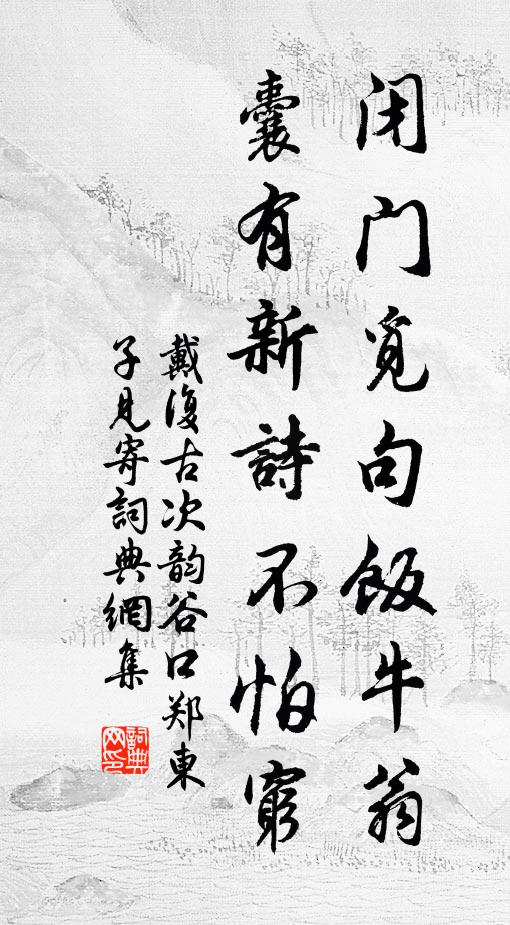 闭门觅句饭牛翁
囊有新詩不怕窮
戴復古次韵谷口郑東
子見寄詞典網集
詞典網印